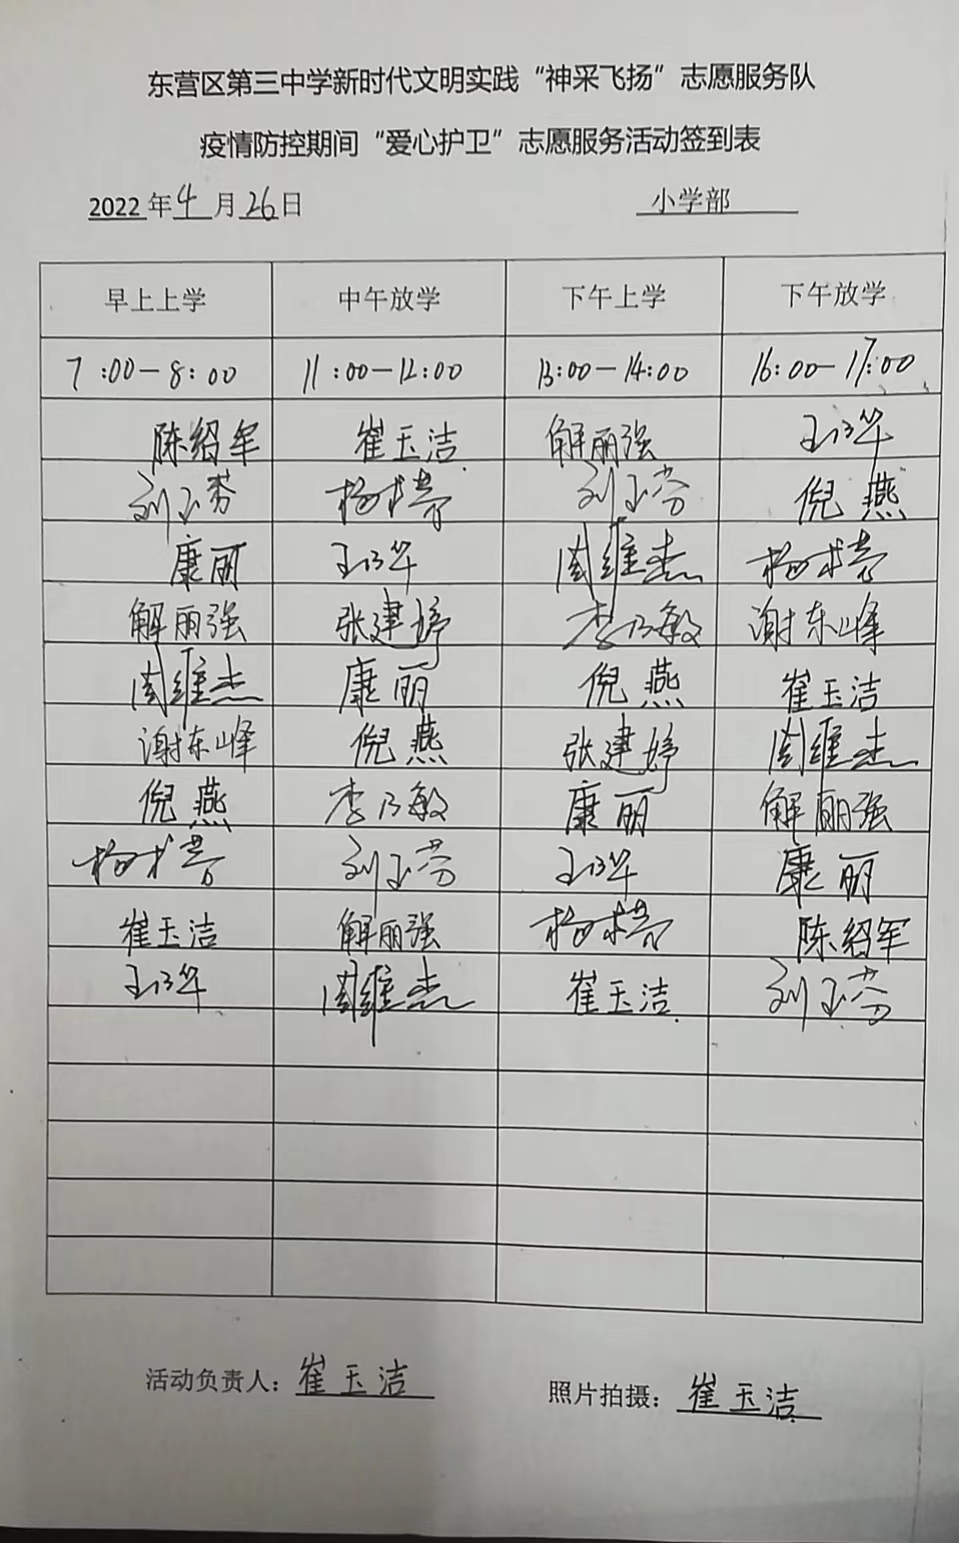 东营区第三中学新时代文明实践“神采飞扬”志愿服务队
疫情防控期间“爱心护卫”志愿服务活动签到表
2022年4月26日 小学部
早上上学 中午放学 下午上学 下午放学
7:00-8:00 11:00-12:00 13:00-14:00 16:00-17:00
陈绍军 崔玉洁 解丽强
刘玉芬 刘玉芬 倪燕
康丽 周维杰
解丽强 张建婷 李乃敏 谢东峰
周维杰 康丽 倪燕 崔玉洁
谢东峰 倪燕 张建婷 周维杰
倪燕 李乃敏 康丽 解丽强
刘玉芬 康丽
崔玉洁 解丽强 陈绍军
周维杰 崔玉洁 刘玉芬
活动负责人：崔玉洁 照片拍摄：崔玉洁